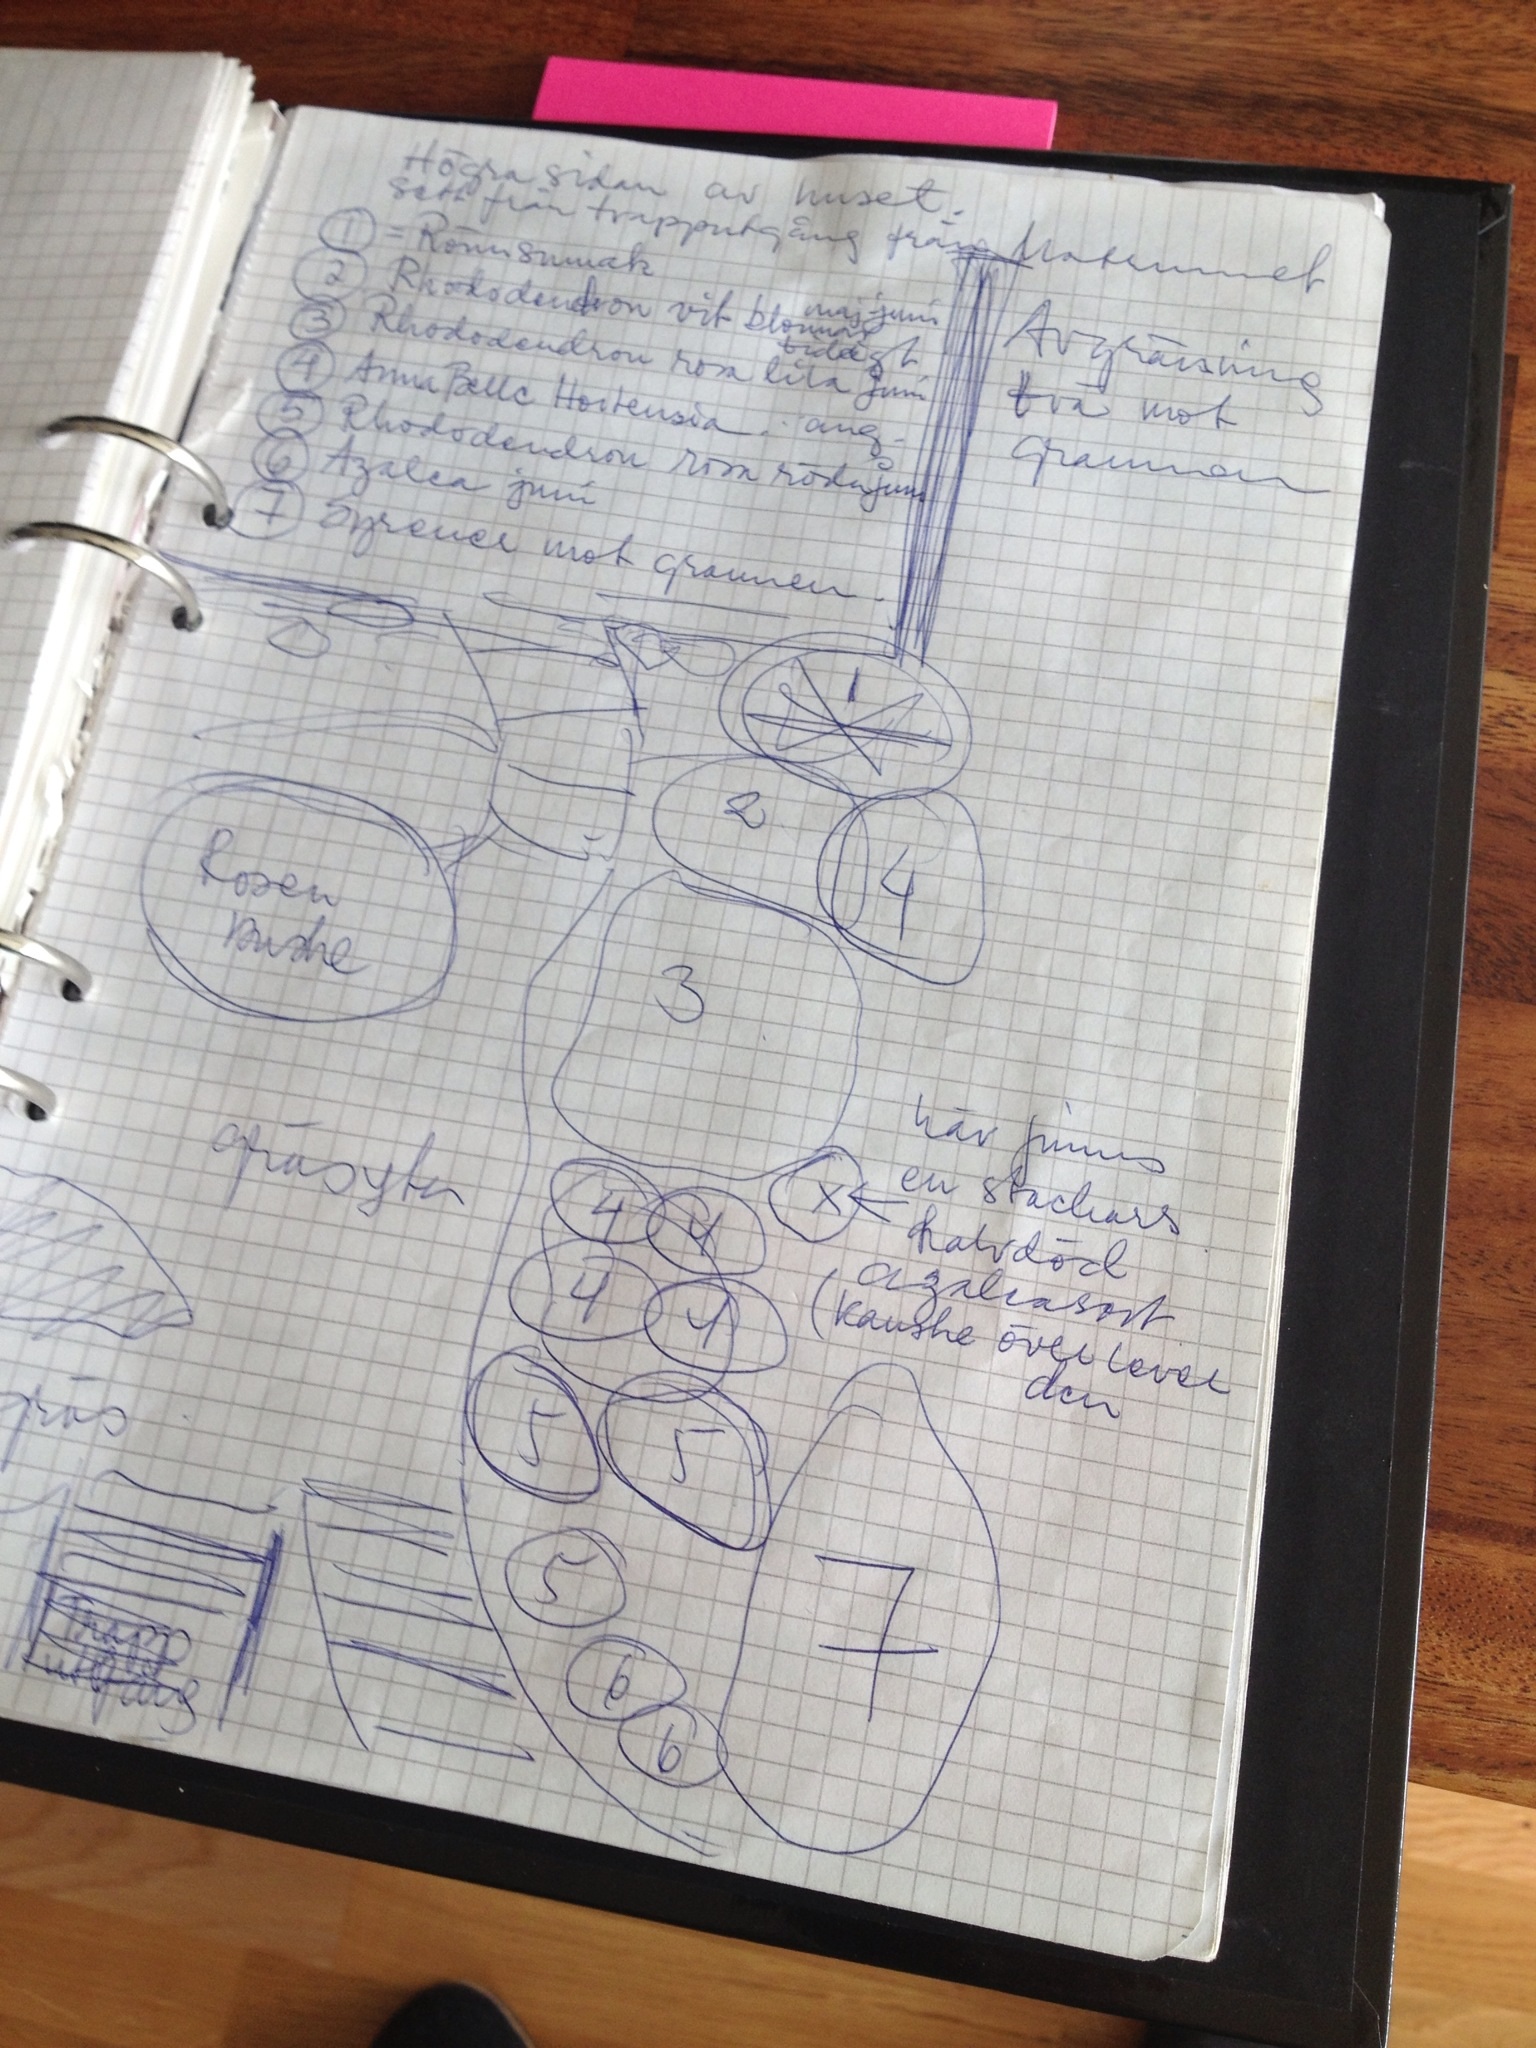 Högra sidan av huset.
Sett från trapputgång från Matrummet
① = Rönnsumak
② Rhododendron vit blommar tidigt maj juni
③ Rhododendron rosa lila juni
④ AnnaBelle Hortensia. aug.
⑤ Rhododendron rosa röda juni
⑥ Azalea juni
⑦ Syrener mot grannen.
Avgränsning
trä mot
grannen
1
2
4
Rosen
buske
3
här finns
en stackars
halvdöd
azaleasort
(kanske överlever
den
X ←
gräsytor
4 4
4 4
gräs
5 5
5
7
Trapp
utgång
6
6